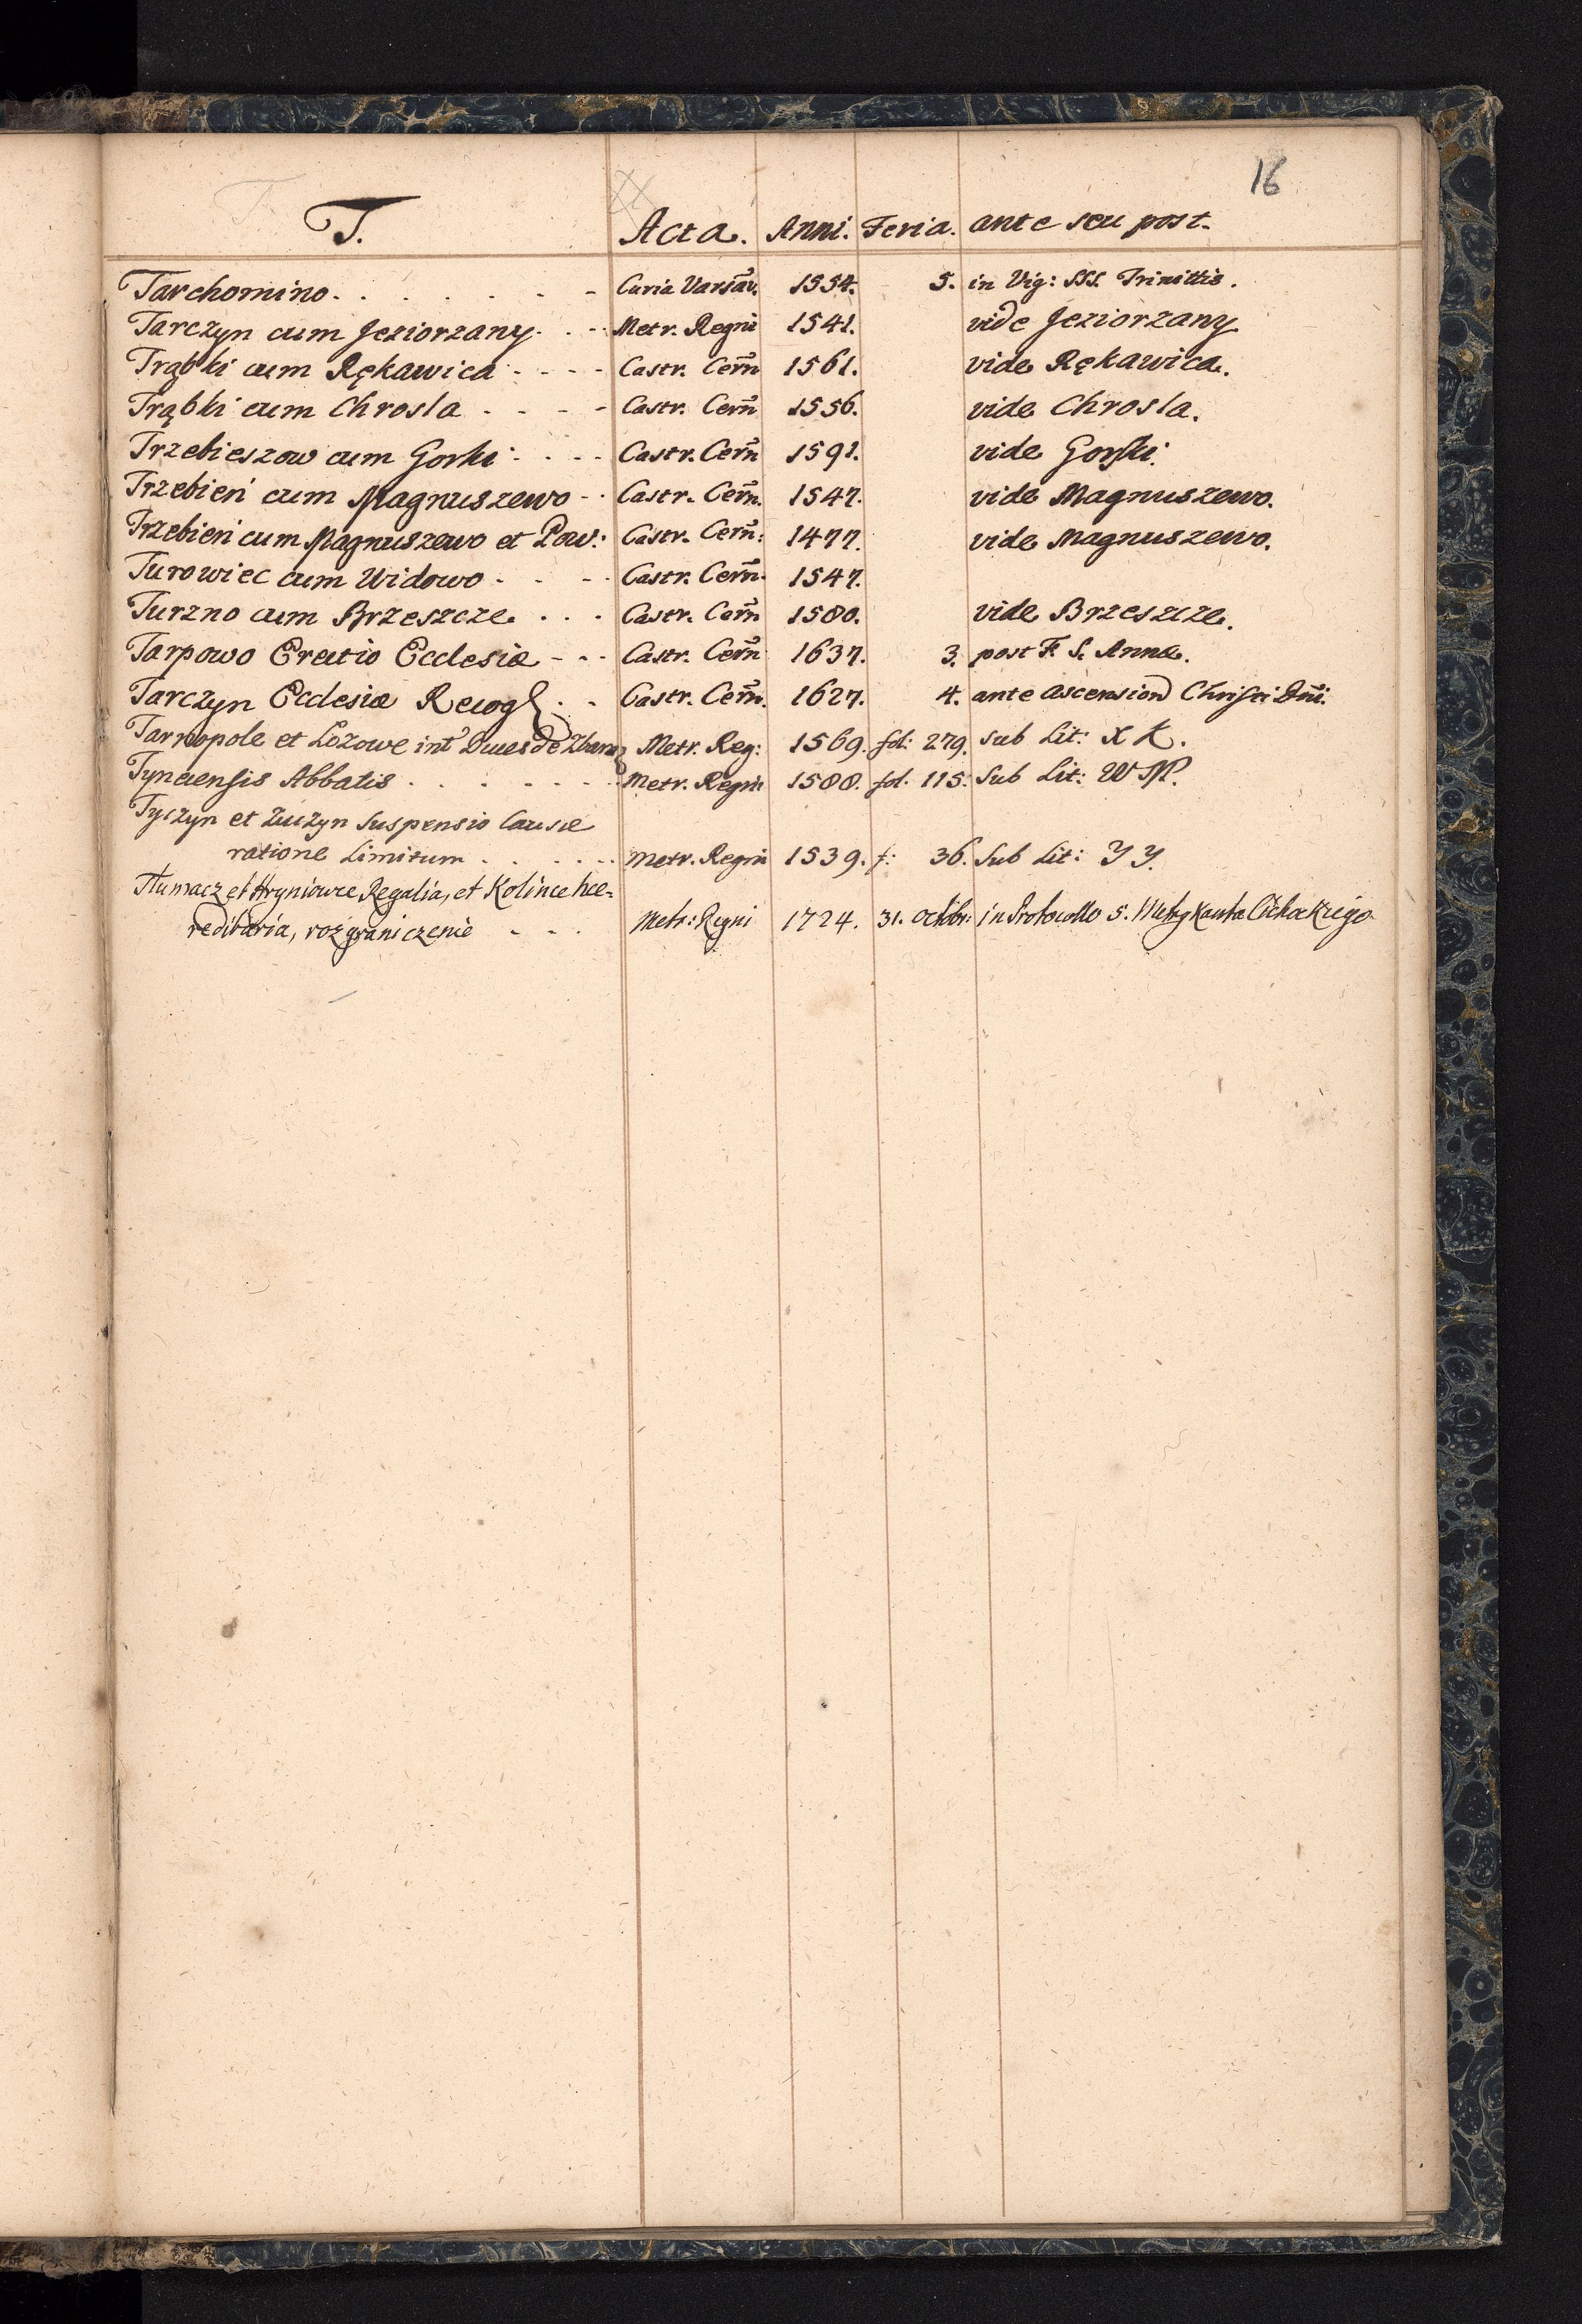 16
T. Acta. Anni. Feria. ante seu post.
Tarchomino. . . . . . . - Curia Varsav. 1554. 5. in Vig: SSS. Trinittis.
Tarczyn cum Jeziorzany. . - Metr. Regni 1541. vide Jeziorzany
Trąbki cum Rękawica - - - - Castr. Cern̄ 1561. vide Rękawica.
Trąbki cum Chrosla . - - - Castr. Cern̄ 1556. vide Chrosla.
Trzebieszow cum Gorki . . - - Castr. Cern̄ 1591. vide Gorki.
Trzebień cum Magnuszewo - . Castr. Cern̄. 1547. vide Magnuszewo.
Trzebień cum Magnuszewo et Pow: Castr. Cern̄: 1477. vide Magnuszewo.
Turowiec cum Widowo . - . - Castr. Cern̄. 1547.
Turzno cum Brzeszcze . . . Castr. Cern̄ 1580. vide Brzeszcze.
Tarpowo Erectio Ecclesiæ - - - Castr. Cern̄ 1637. 3. post F. S. Annæ.
Tarczyn Ecclesiæ Recog . . Castr. Cern̄. 1627. 4. ante ascension Christi Dn̄i.
Tarnopole et Lozowe int Duces de Zbaraz Metr. Reg: 1569. fol: 279. sub Lit: X K.
Tynecensis Abbatis . . . . . . . Metr. Regni 1588. fol. 115. Sub Lit: W M.
Tyczyn et Zuczyn Suspensio Causæ
ratione Limitum . . . . . . Metr. Regni 1539. f: 36. Sub Lit: Y Y.
Tłumacz et Hryniowce Regalia, et Kolince hæ-
reditaria, rozgraniczenie - . . Metr: Regni 1724. 31. Octbr: in Protocollo 5.